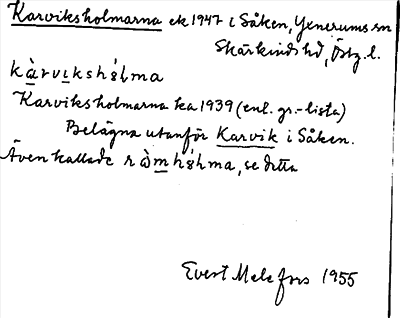 Karviksholmarna ek 1947 i Såken, Yxnerums sn
Skärkinds hd, Östg.l.
kàrvikshólma
Karviksholmarna ka 1939 (enl. gr.-lista)
Belägna utanför Karvik i Såken.
Även kallade ràmhólma, se detta
Evert Melefors 1955